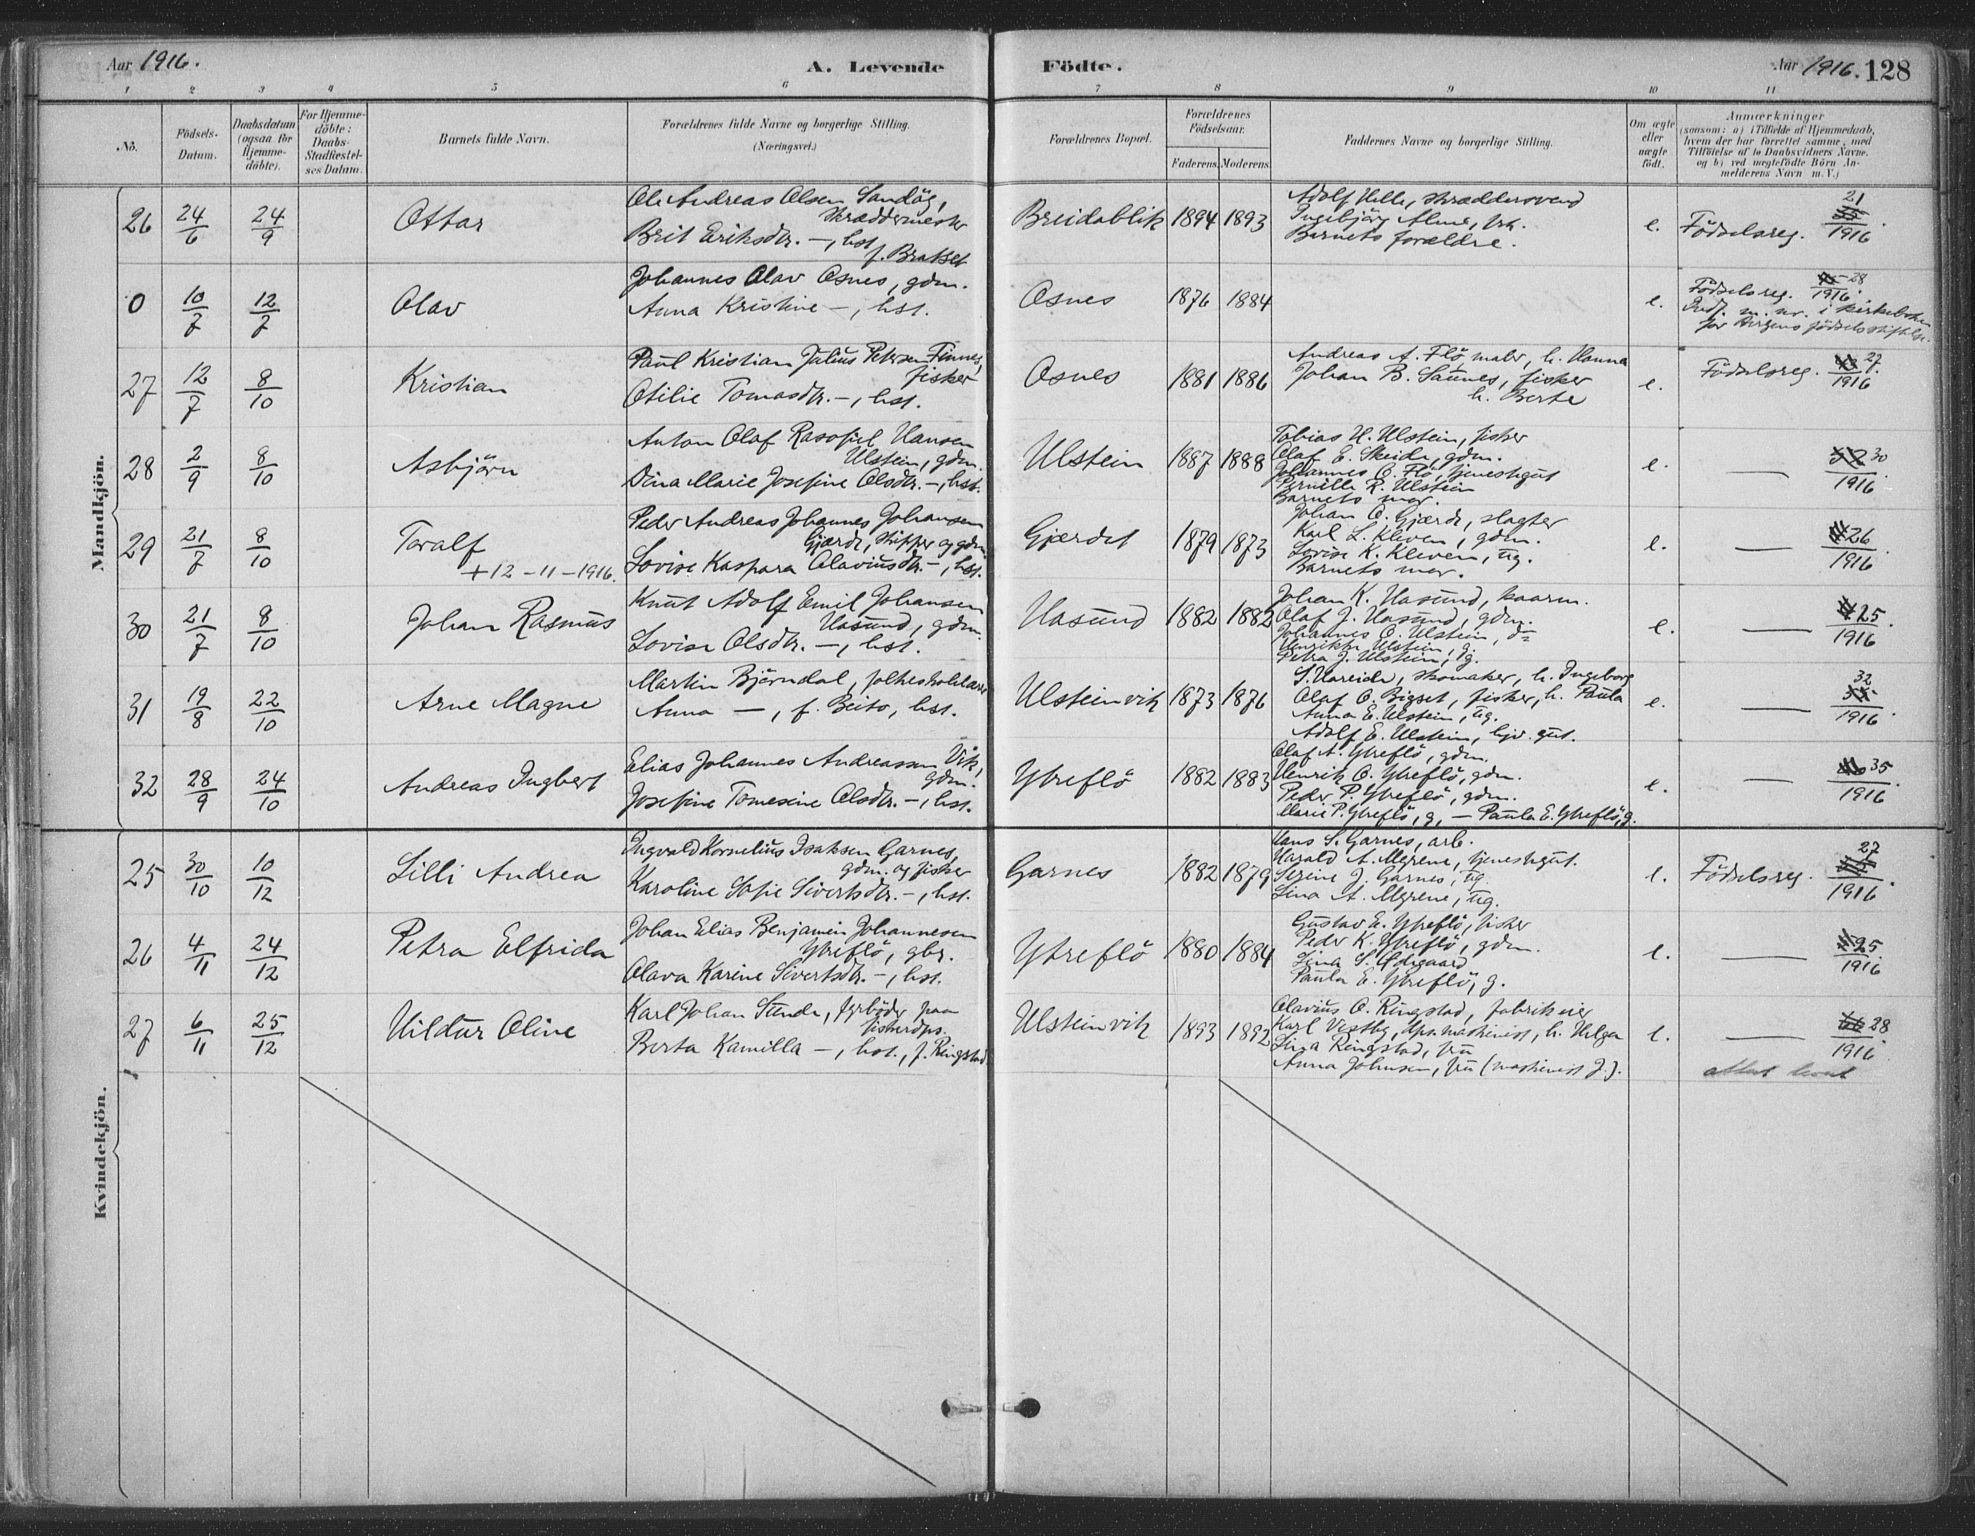 Aar 1916.
A. Levende
Födte.
Aar 1916. 128
1 2 3 4 5 6 7 8 9 10 11
No.
Födsels-
Datum.
Daabsdatum
(ogsaa for
Hjemme-
döbte).
For Hjemme-
döbte:
Daabs-
Stadfæstel-
ses Datum.
Barnets fulde Navn.
Forældrenes fulde Navne og borgerlige Stilling.
(Næringsvei.)
Forældrenes Bopæl.
Forældrenes
Födselsaar.
Faderens. Moderens.
Faddernes Navne og borgerlige Stilling.
Om ægte
eller
uægte
födt.
Anmærkninger
(saasom: a) i Tilfælde af Hjemmedaab,
hvem der har forrettet samme, med
Tilföielse af to Daabsvidners Navne.
og b) ved uægtefödte Börn An-
melderens Navn m. V.)
Mandkjön.
26 24/6 24/9 Ottar
Ole Andreas Olsen Sandög,
skræddermester
Brit Eriksdtr. —, hst.
f. Bratset
Breidablik 1894 1893
Adolf Helle, skræddersvend
Ingebjörg Alme, frk.
Barnets forældre.
e. Födselsreg. 21/1916.
0 10/7 12/7 Olav
Johannes Olav Osnes, gdm.
Anna Kristine —, hst.
Osnes 1876 1884
e. Födselsreg. 28/1916.
Indf. u. nr. i kirkeboken
for Bergens födselsstiftelse.
27 12/7 8/10 Kristian
Paul Kristian Julius Petersen Finnes,
fisker
Otilie Tomasdtr. —, hst.
Osnes 1881 1886
Andreas A. Flö, maler, h. Hanna
Johan B. Saunes, fisker
h. Berte
e. Födselsreg. 27/1916.
28 2/9 8/10 Asbjörn
Anton Olaf Rasofiel Hansen
Ulstein, gdm.
Dina Marie Josefine Olsdtr. —, hst.
Ulstein 1887 1888
Tobias H. Ulstein, fisker
Olaf E. Skeide, gdm.
Johannes O. Flö, tjenestegut
Pernille R. Ulstein
Barnets mor.
e. — 30/1916.
29 21/7 8/10 Toralf
+ 12 - 11 - 1916.
Peder Andreas Johannes Johansen
Gjærde, skipper og gdm.
Lovise Kaspara Olaviusdtr. —, hst.
Gjerdet 1879 1873
Johan O. Gjærde, slagter
Karl L. Kleven, gdm.
Lovise K. Kleven, ug.
Barnets mor.
e. — 26/1916.
30 21/7 8/10 Johan Rasmus
Knut Adolf Emil Johansen
Hasund, gdm.
Lovise Olsdtr. —, hst.
Hasund 1882 1882
Johan K. Hasund, kaarm.
Olaf J. Hasund, gdm.
Johannes O. Ulstein, do
Henrikke Ulstein, g.
Petra J. Ulstein, g.
e. — 25/1916.
31 19/8 22/10 Arne Magne
Martin Björndal, folkeskolelærer
Anna —, f. Beito, hst.
Ulsteinvik 1873 1876
S. Hareide, skomaker, h. Ingeborg
Olaf O. Bigset, fisker, h. Paula
Anna E. Ulstein, ug.
Adolf E. Ulstein, hjv. gut.
e. — 32/1916.
32 28/9 24/10 Andreas Ingbert
Elias Johannes Andreassen Vik,
gdm.
Josefine Tomesine Olsdtr. —, hst.
Ytreflö 1882 1883
Olaf A. Ytreflö, gdm.
Henrik O. Ytreflö, gdm.
Peder P. Ytreflö, gdm.
Marie P. Ytreflö, g, — Paula E. Ytreflö, g.
e. — 35/1916.
Kvindekjön.
25 30/10 10/12 Lilli Andrea
Ingvald Kornelius Isaksen Garnes,
gdm. og fisker
Karoline Sofie Sivertsdtr. —, hst.
Garnes 1882 1879
Hans S. Garnes, arb.
Harald A. Myrene, tjenestegut.
Serine J. Garnes, ug.
Lina A. Myrene, ug.
e. Födselsreg. 27/1916.
26 4/11 24/12 Petra Elfrida
Johan Elias Benjamin Johannesen
Ytreflö, gbr.
Olava Karine Sivertsdtr. —, hst.
Ytreflö 1880 1884
Gustav E. Ytreflö, fisker
Peder K. Ytreflö, gdm.
Lina S. Ødegaard
Paula E. Ytreflö, g.
e. — 25/1916.
27 6/11 25/12 Hildur Oline
Karl Johan Stende, fyrböder paa
fiskerdps.
Berta Kamilla —, hst., f. Ringstad
Ulsteinvik 1893 1892
Olavius O. Ringstad, fabrikeier
Karl Vestby, dps. maskinist, h. Helga
Lina Ringstad, fru
Anna Johnsen, fru (maskinist J.).
e. — 28/1916.